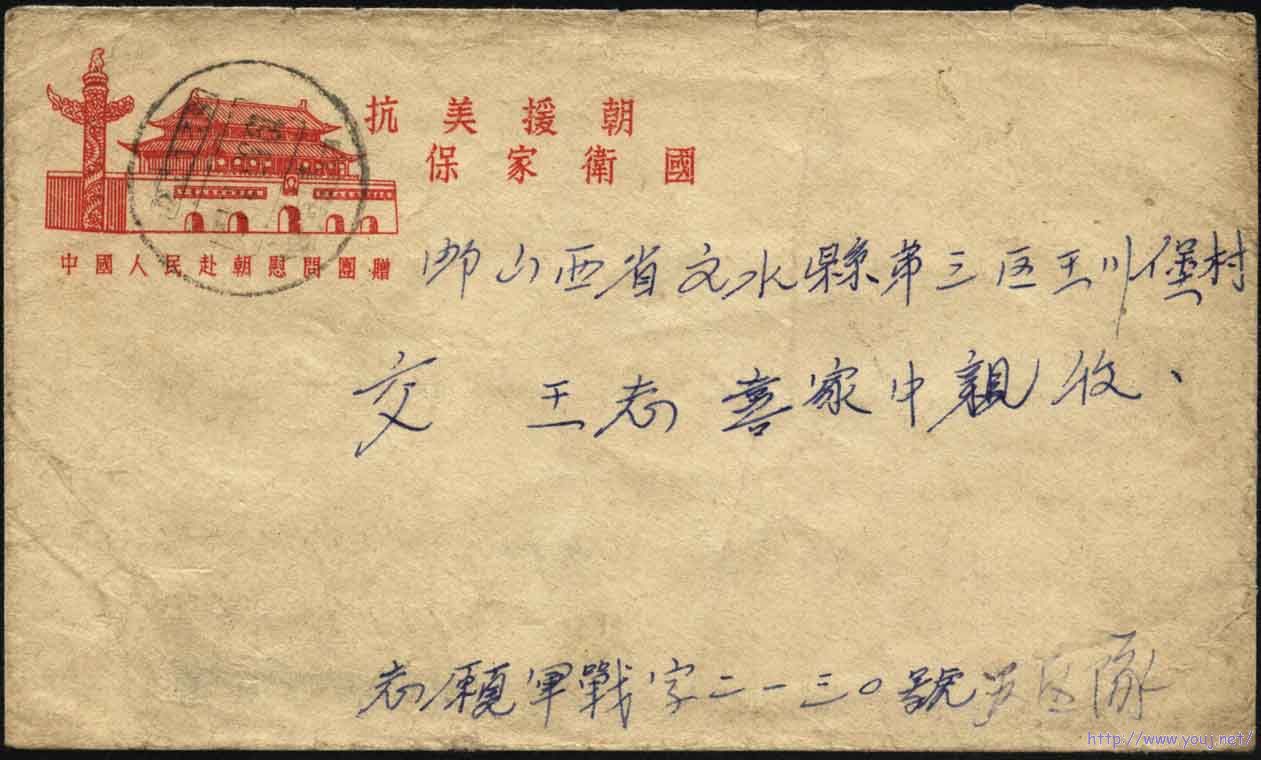 抗美援朝
保家衛國
中國人民赴朝慰問團贈
山西省文水縣第三区王川堡村
交 王志喜家中親收、
志願軍戰字二一三〇號
http://www.youj.net/